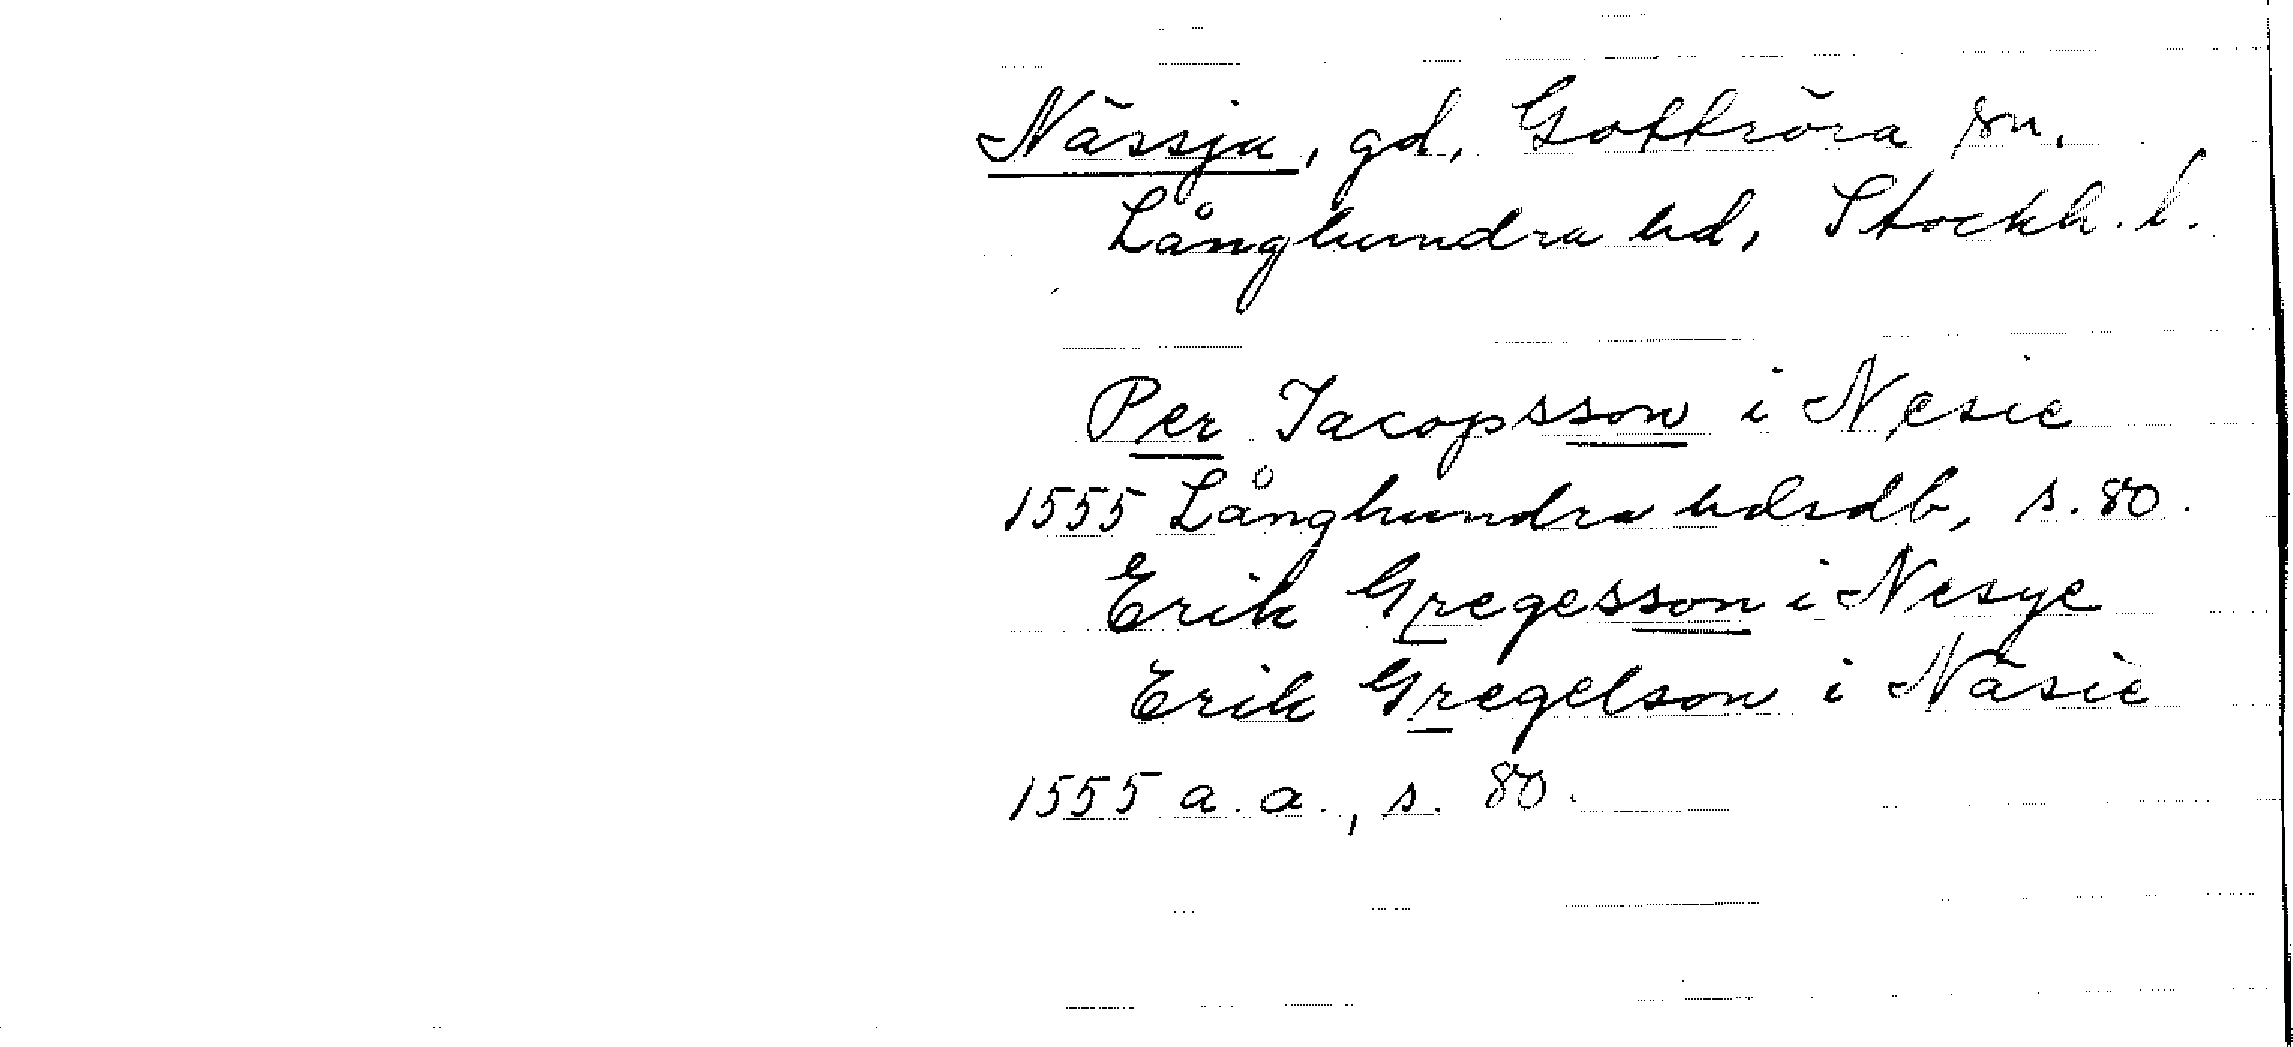 Nässja, gd, Gottröra sn.
Långhundra hd, Stockh. l.
Per Jacopsson i Nesie
1555 Långhundra hdsdb, s. 80.
Erik Gregesson i Nesye
Erik Gregelson i Näsie
1555 a. a., s. 80.